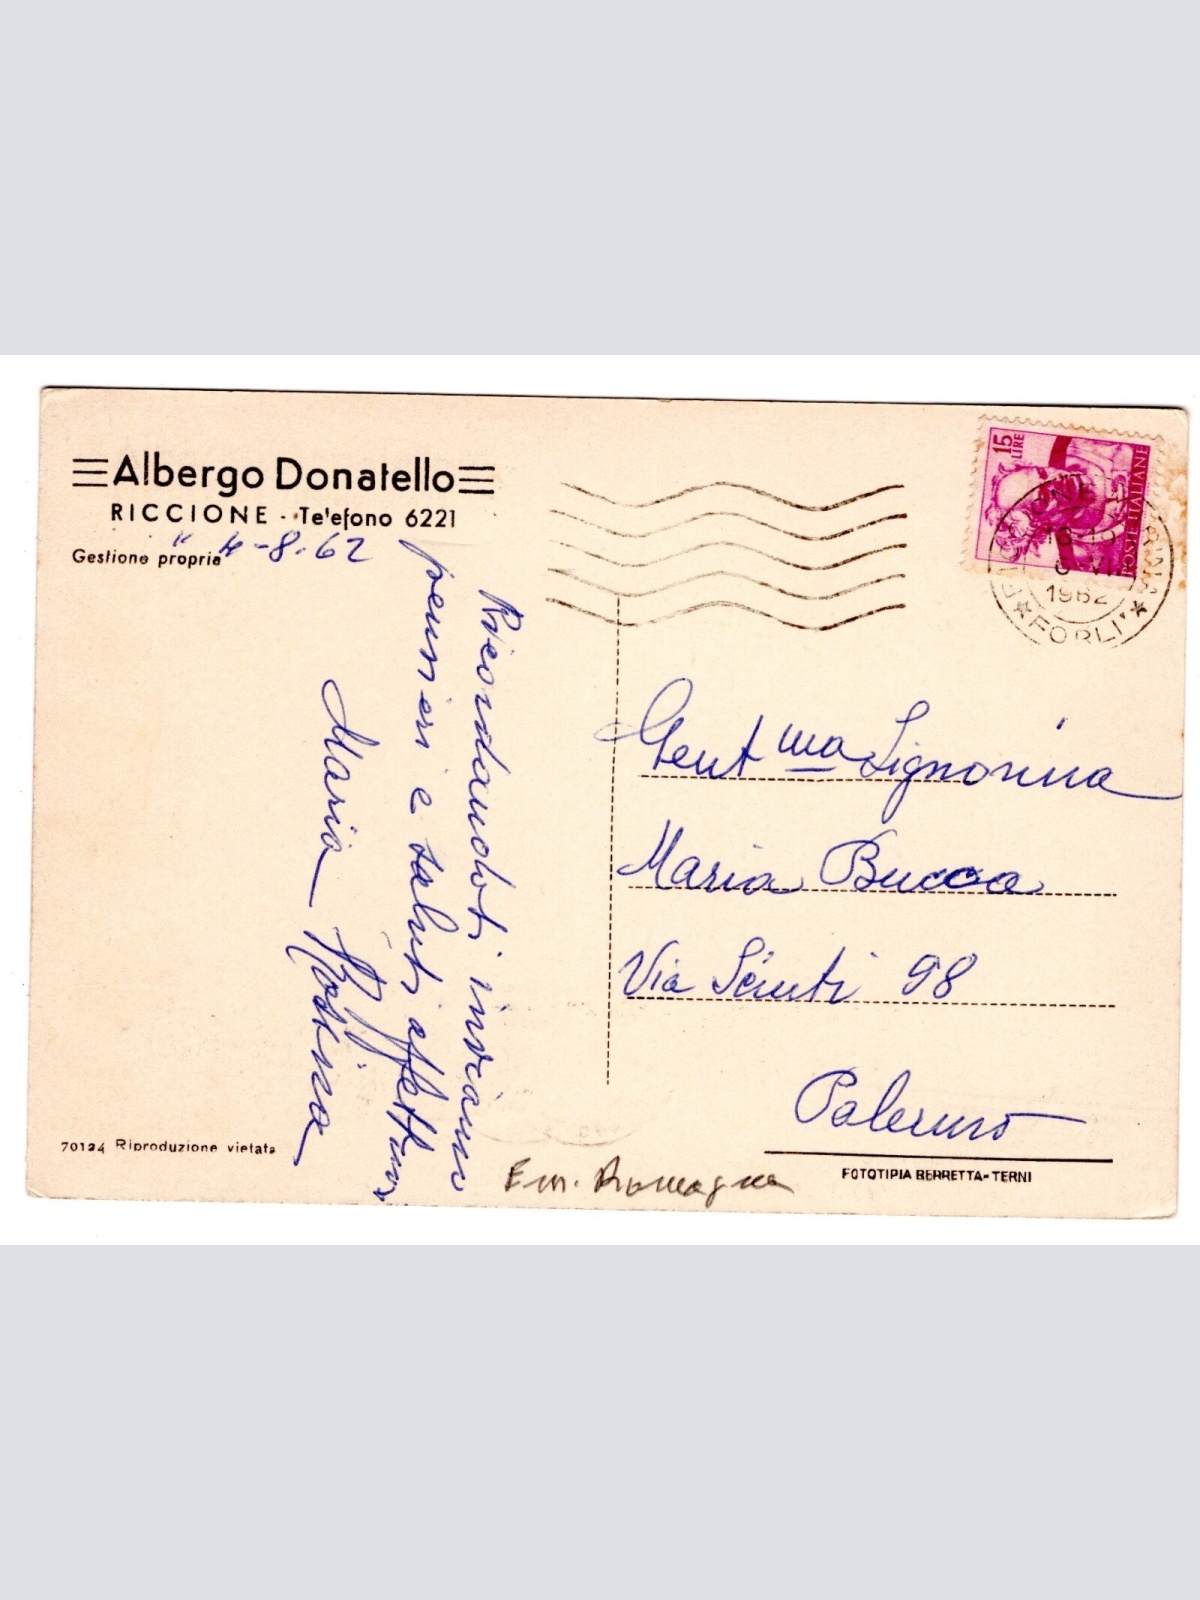 Albergo Donatello
RICCIONE - Telefono 6221
Gestione propria
" 4-8-62
Ricordandoti inviamo
pensieri e saluti affett.mi
Maria
Rosina
15
LIRE
POSTE ITALIANE
1962
*FORLI'*
Gent ma Signorina
Maria Bucca
Via Sciuti 98
Palermo
70124 Riproduzione vietata
Em. Romagna
FOTOTIPIA BERRETTA-TERNI